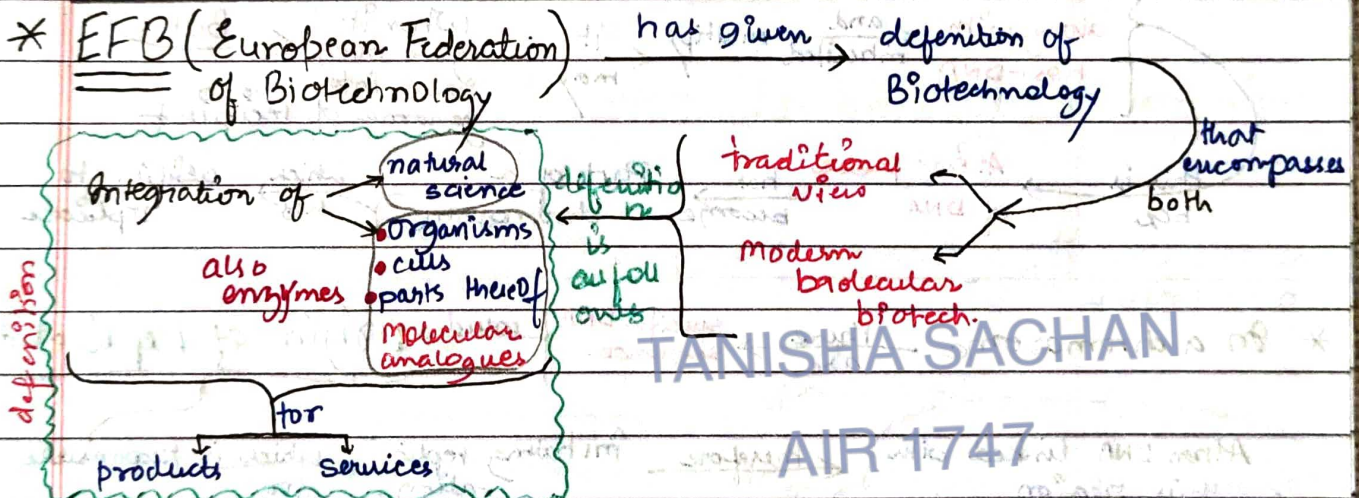 * EFB (European Federation of Biotechnology)
has given
defenition of
Biotechnology
that
encompasses
both
traditional
view
Modern
biotech.
defenition
is
as foll
ows
defenition
Integration of
natural
science
organisms
cells
parts thereof
Molecular
analogues
also
enzymes
for
products
services
TANISHA SACHAN
AIR 1747